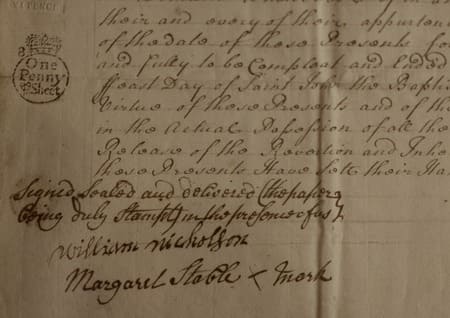 VI PENCE
their and every of their appurten
of the date of these Presents fo
and fully to be Compleat and Ended
ffeast Day of Saint John the Bapti
Virtue of these Presents and of th
in the Actual Possession of all the
Release of the Revertion and Inhe
these Presents Have sett their Ha
8
One
Penny
Sheet
Signed sealed and delivered (the paper
being duly Stampt) in the presence of us
William Nicholson
Margaret Stable x Mark